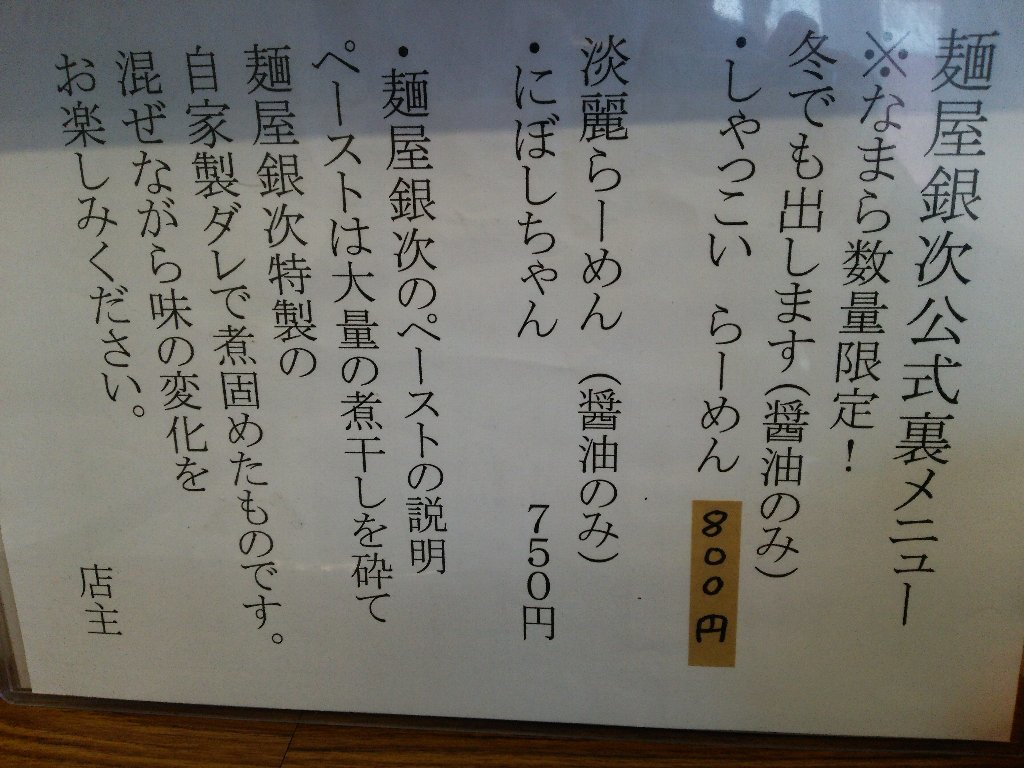 麺屋銀次公式裏メニュー
※なまら数量限定！
冬でも出します(醤油のみ)
・しゃっこい　らーめん　800円
淡麗らーめん　(醤油のみ)
・にぼしちゃん　７５０円
・麺屋銀次のペーストの説明
ペーストは大量の煮干しを砕て
麺屋銀次特製の
自家製ダレで煮固めたものです。
混ぜながら味の変化を
お楽しみください。
店主